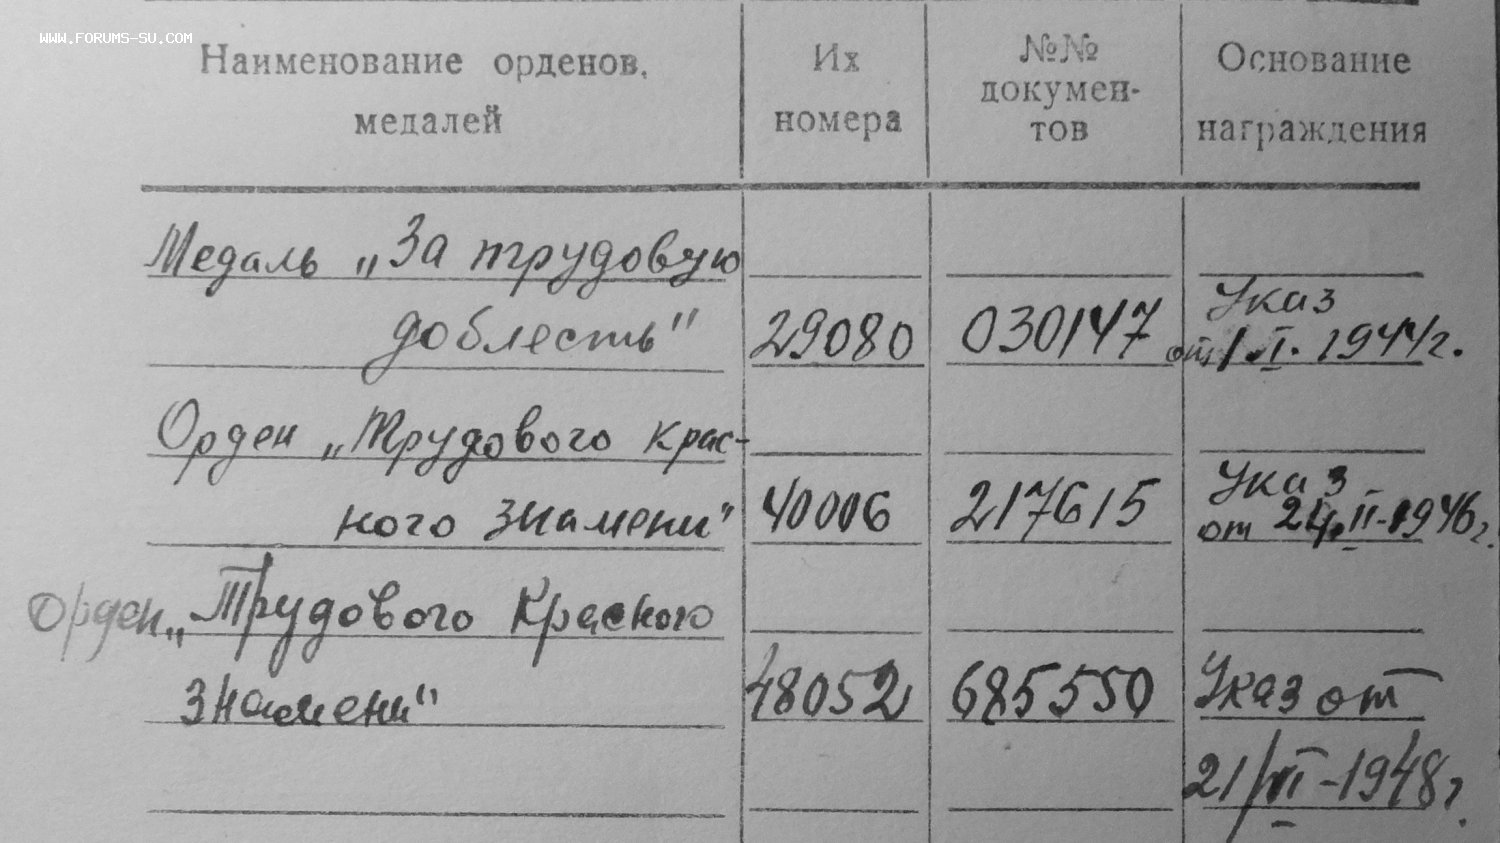 WWW.FORUMS-SU.COM
Наименование орденов, медалей
Их номера
№№ докумен-тов
Основание награждения
Медаль „За трудовую
доблесть" 29080 030147 Указ от 1.I.1944г.
Орден „Трудового Крас-
ного Знамени" 40006 217615 Указ от 24.II-1946г.
Орден „Трудового Красного
Знамени" 48052 685550 Указ от
21/VII-1948г.